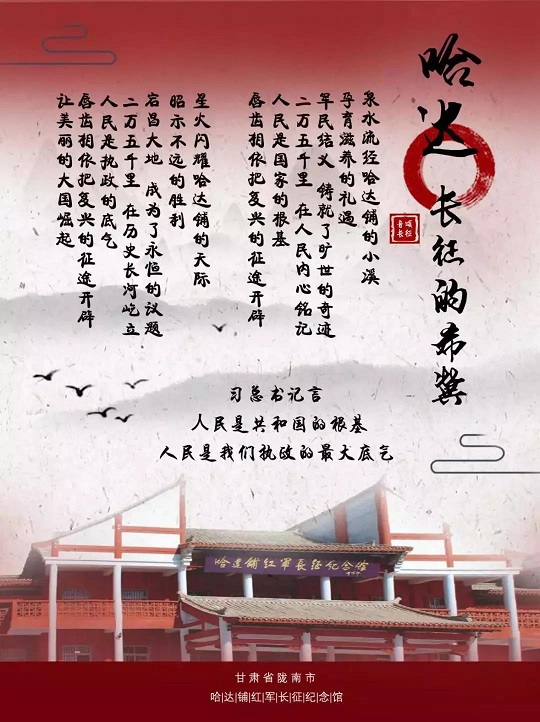 哈达 长征的希冀
泉水流经哈达铺的小溪
孕育滋养的礼遇
军民结义 铸就了旷世的奇迹
二万五千里 在人民内心铭记
人民是国家的根基
唇齿相依把复兴的征途开辟
星火闪耀哈达铺的天际
昭示不远的胜利
宕昌大地 成为了永恒的议题
二万五千里 在历史长河屹立
人民是执政的底气
唇齿相依把复兴的征途开辟
让美丽的大国崛起
习总书记言
人民是共和国的根基
人民是我们执政的最大底气
哈達鋪红軍長征纪念馆
甘肃省陇南市
哈|达|铺|红|军|长|征|纪|念|馆